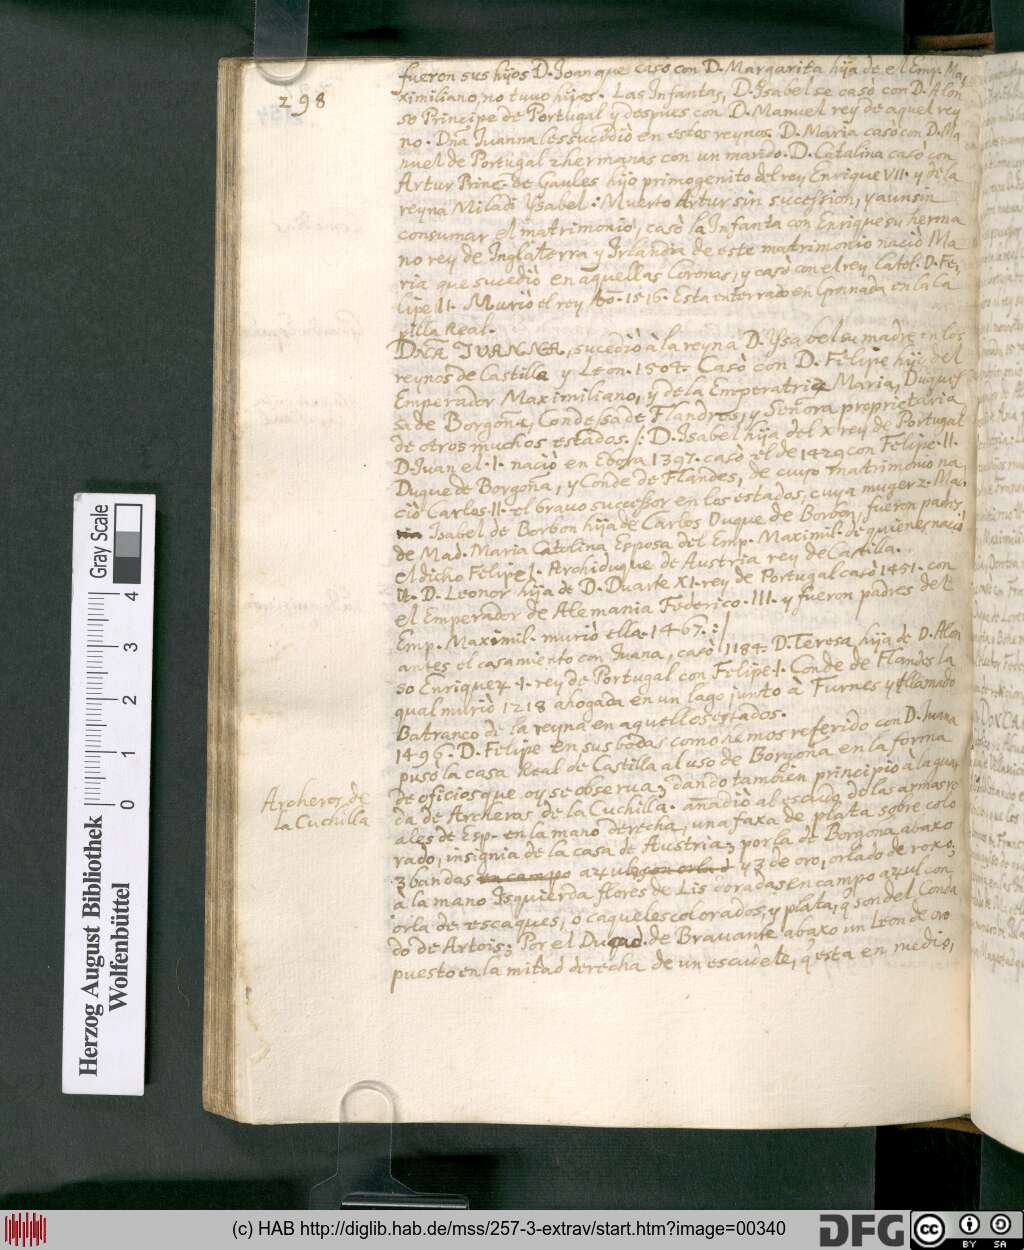 298
fueron sus hijos D. Joan que caso con D. Margarita hija de el Emp. Ma,
ximiliano, no tuvo hijos. Las Infantas, D. Isabel se casò con D. Alon
so Principe de Portugal y despues con D. Manuel rey de aquel rey
no. Dña Juanna les succediò en estos reynos. D. Maria casò con D. Ma
nuel de Portugal 2 hermanas con un marido. D. Catalina casò con
Artur Princ. de Gaules hijo primogenito del rey Enrique VII. y de la
reyna Miladi Ysabel. Muerto Artur sin sucession, y aun sin
consumar el matrimonio, casò la Infanta con Enrique su herma
no rey de Inglaterra y Irlandia de este matrimonio naciò Ma
ria que sucediò en aquellas Coronas, y casò con el rey Catol. D. Fe,
lipe II. Muriò el rey Año. 1516. Esta enterrado en Granada en la Ca
pilla Real.
DÑA JUANNA, sucediò à la reyna D. Ysabel su madre en los
reynos de Castilla y Leon. 1504. Casò con D. Felipe hijo del
Emperador Maximiliano, y de la Emperatriz Maria, Duques
sa de Borgoña, Condessa de Flandres, y Señora proprietaria
de otros muchos estados. /: D. Isabel hija del x rey de Portugal
D Juan el. I. naciò en Ebora 1397. casò el de 1429 con Felipe. II.
Duque de Borgoña, y Conde de Flandes, de cuyo matrimonio na,
ciò Carlos. II. el bravo successor en los estados, cuya muger 2. Ma,
Isabel de Borbon hija de Carlos Duque de Borbon, fueron padres
de Mad. Maria Catolina Esposa del Emp. Maximil. de quienes naciò
el dicho Felipe I. Archiduque de Austria rey de Castilla.
D. Leonor hija de D. Duarte XI. rey de Portugal casò 1451. con
el Emperador de Alemania Federico. III. y fueron padres del
Emp. Maximil. murió ella. 1467.:/
antes el casamiento con Juana, casò 1184: D. Teresa hija de D. Alon
so Enriquez. I. rey de Portugal con Felipe. I. Conde de Flandes la
qual muriò 1218 ahogada en un lago junto à Furnes y llamado
Batranco de la reyna en aquellos estados.
1496. D. Felipe en sus bodas como hemos referido con D. Juana
puso la casa Real de Castilla al uso de Borgoña en la forma
de oficios que oy se observa; dando tambien principio à la guar
da de Archeros de la Cuchilla. añadiò al escudo de las armas re
ales de Esp. en la mano derecha, una faxa de plata sobre colo
rado, insignia de la casa de Austria; por la de Borgoña abaxo
3 bandas en campo azul con orla d y 3 de oro, orlado de roxo;
à la mano Isquierda flores de Lis doradas en campo azul con
orla de escaques, o caqueles colorados, y plata, q̃ son del Conda
do de Artois; Por el Ducad. de Bravante abaxo un Leon de oro
puesto en la mitad derecha de un escudete, q̃ esta en medio,
Archeros de
la Cuchilla
Herzog August Bibliothek
Wolfenbüttel
0 1 2 3 4
Gray Scale
(c) HAB http://diglib.hab.de/mss/257-3-extrav/start.htm?image=00340
DFG
cc BY SA